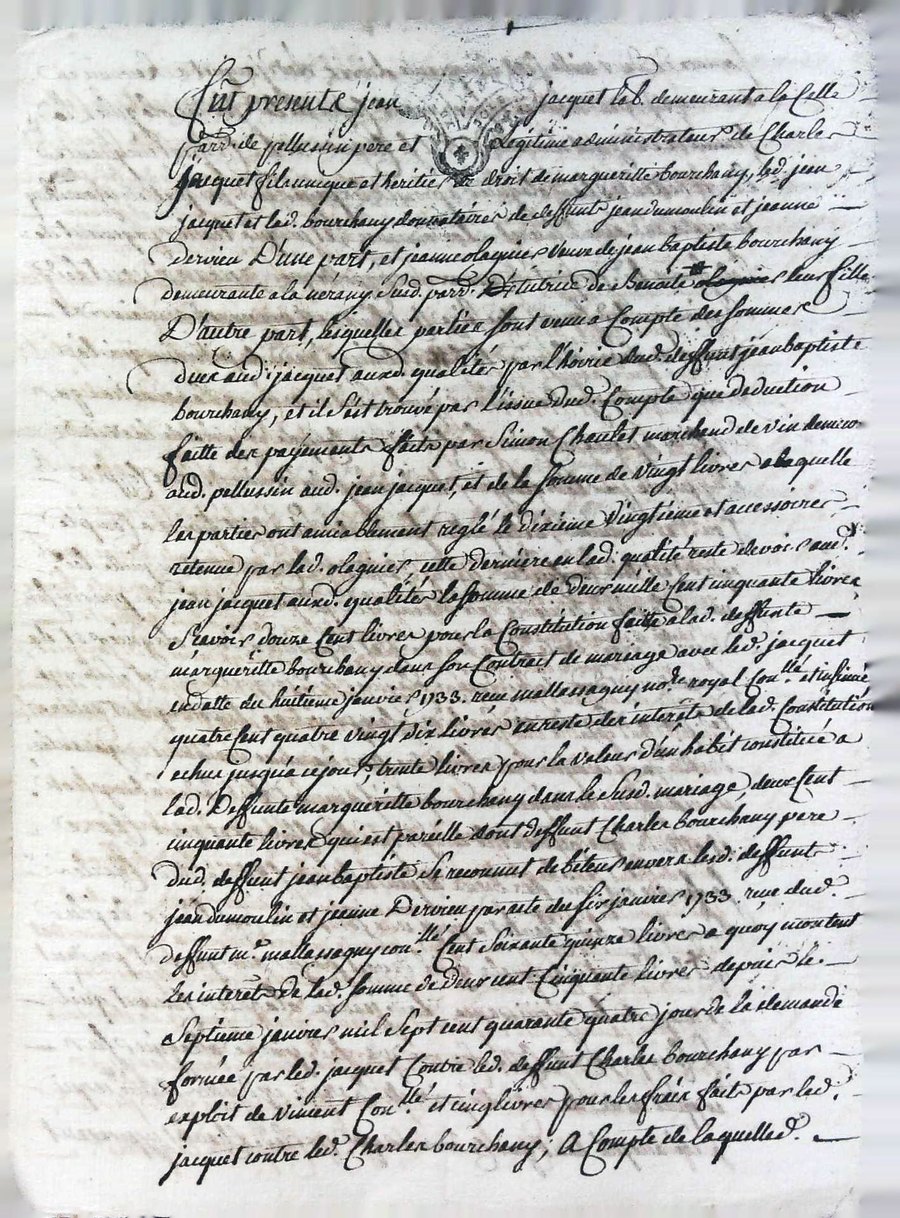 fut présente jean jacquet lab. demeurant a la Celle
parr. de pellussin pere et Legitime administrateur de Charles
jacquet fils unique et heritier de droit de margueritte bourchany, led. jean
jacquet et lad. bourchany donnataires de deffunts jean dumoulin et jeanne
dervieu D'une part, et jeanne olagnier veuve de jean baptiste bourchany
demeurante a la nérany Susd. parr. tutrice de Benoite olagnier leur fille
D'autre part, lesquelles parties sont venu a Compte des sommes
dues aud. jacquet auxd. qualités par l'hoirie dud. deffunt jean baptiste
bourchany, et il s'est trouvé par l'issue dud. Compte que deduction
faitte des payements faits par Simon Chaulet marchand de vin demeu
aud. pellussin aud. jean jacquet, et de la somme de vingt livres a laquelle
les parties ont amiablement reglé le dixieme vingtième et accessoires
retenue par lad. olagnier, cette derniere en lad. qualité reste devoir aud.
jean jacquet auxd. qualités la somme de deux mille Cent cinquante livres
Scavoir douze Cent livres pour la Constitution faitte a lad. deffunte
margueritte bourchany dans son Contrat de mariage avec led. jacquet
en datte du huitieme janvier 1733. reçu mallassagny no.re royal Con.llé et insinué
quatre Cent quatre vingt dix livres en reste des interets de lad. Constitution
echus jusqu'a ce jour, trente livres pour la valeur d'un habit constitué a
lad. Deffunte margueritte bourchany dans le Susd. mariage, deux Cent
cinquante livres qui est pareille dont deffunt Charles bourchany pere
dud. deffunt jean baptiste Se reconnut debiteur envers lesd. deffunts
jean dumoulin et jeanne Dervieu par acte du six janvier 1733. reçu dud.
deffunt m.e mallassagny con.llé Cent Soixante quinze livres a quoy montent
les interets de lad. somme de deux cent Cinquante livres depuis le
Septieme janvier mil Sept cent quarante quatre jour de la demande
formée par led. jacquet Contre led. deffunt Charles bourchany par
exploit de viment Con.llé et cinq livres pour les fraix faits par led.
jacquet contre led. Charles bourchany; A Compte de laquelle d.